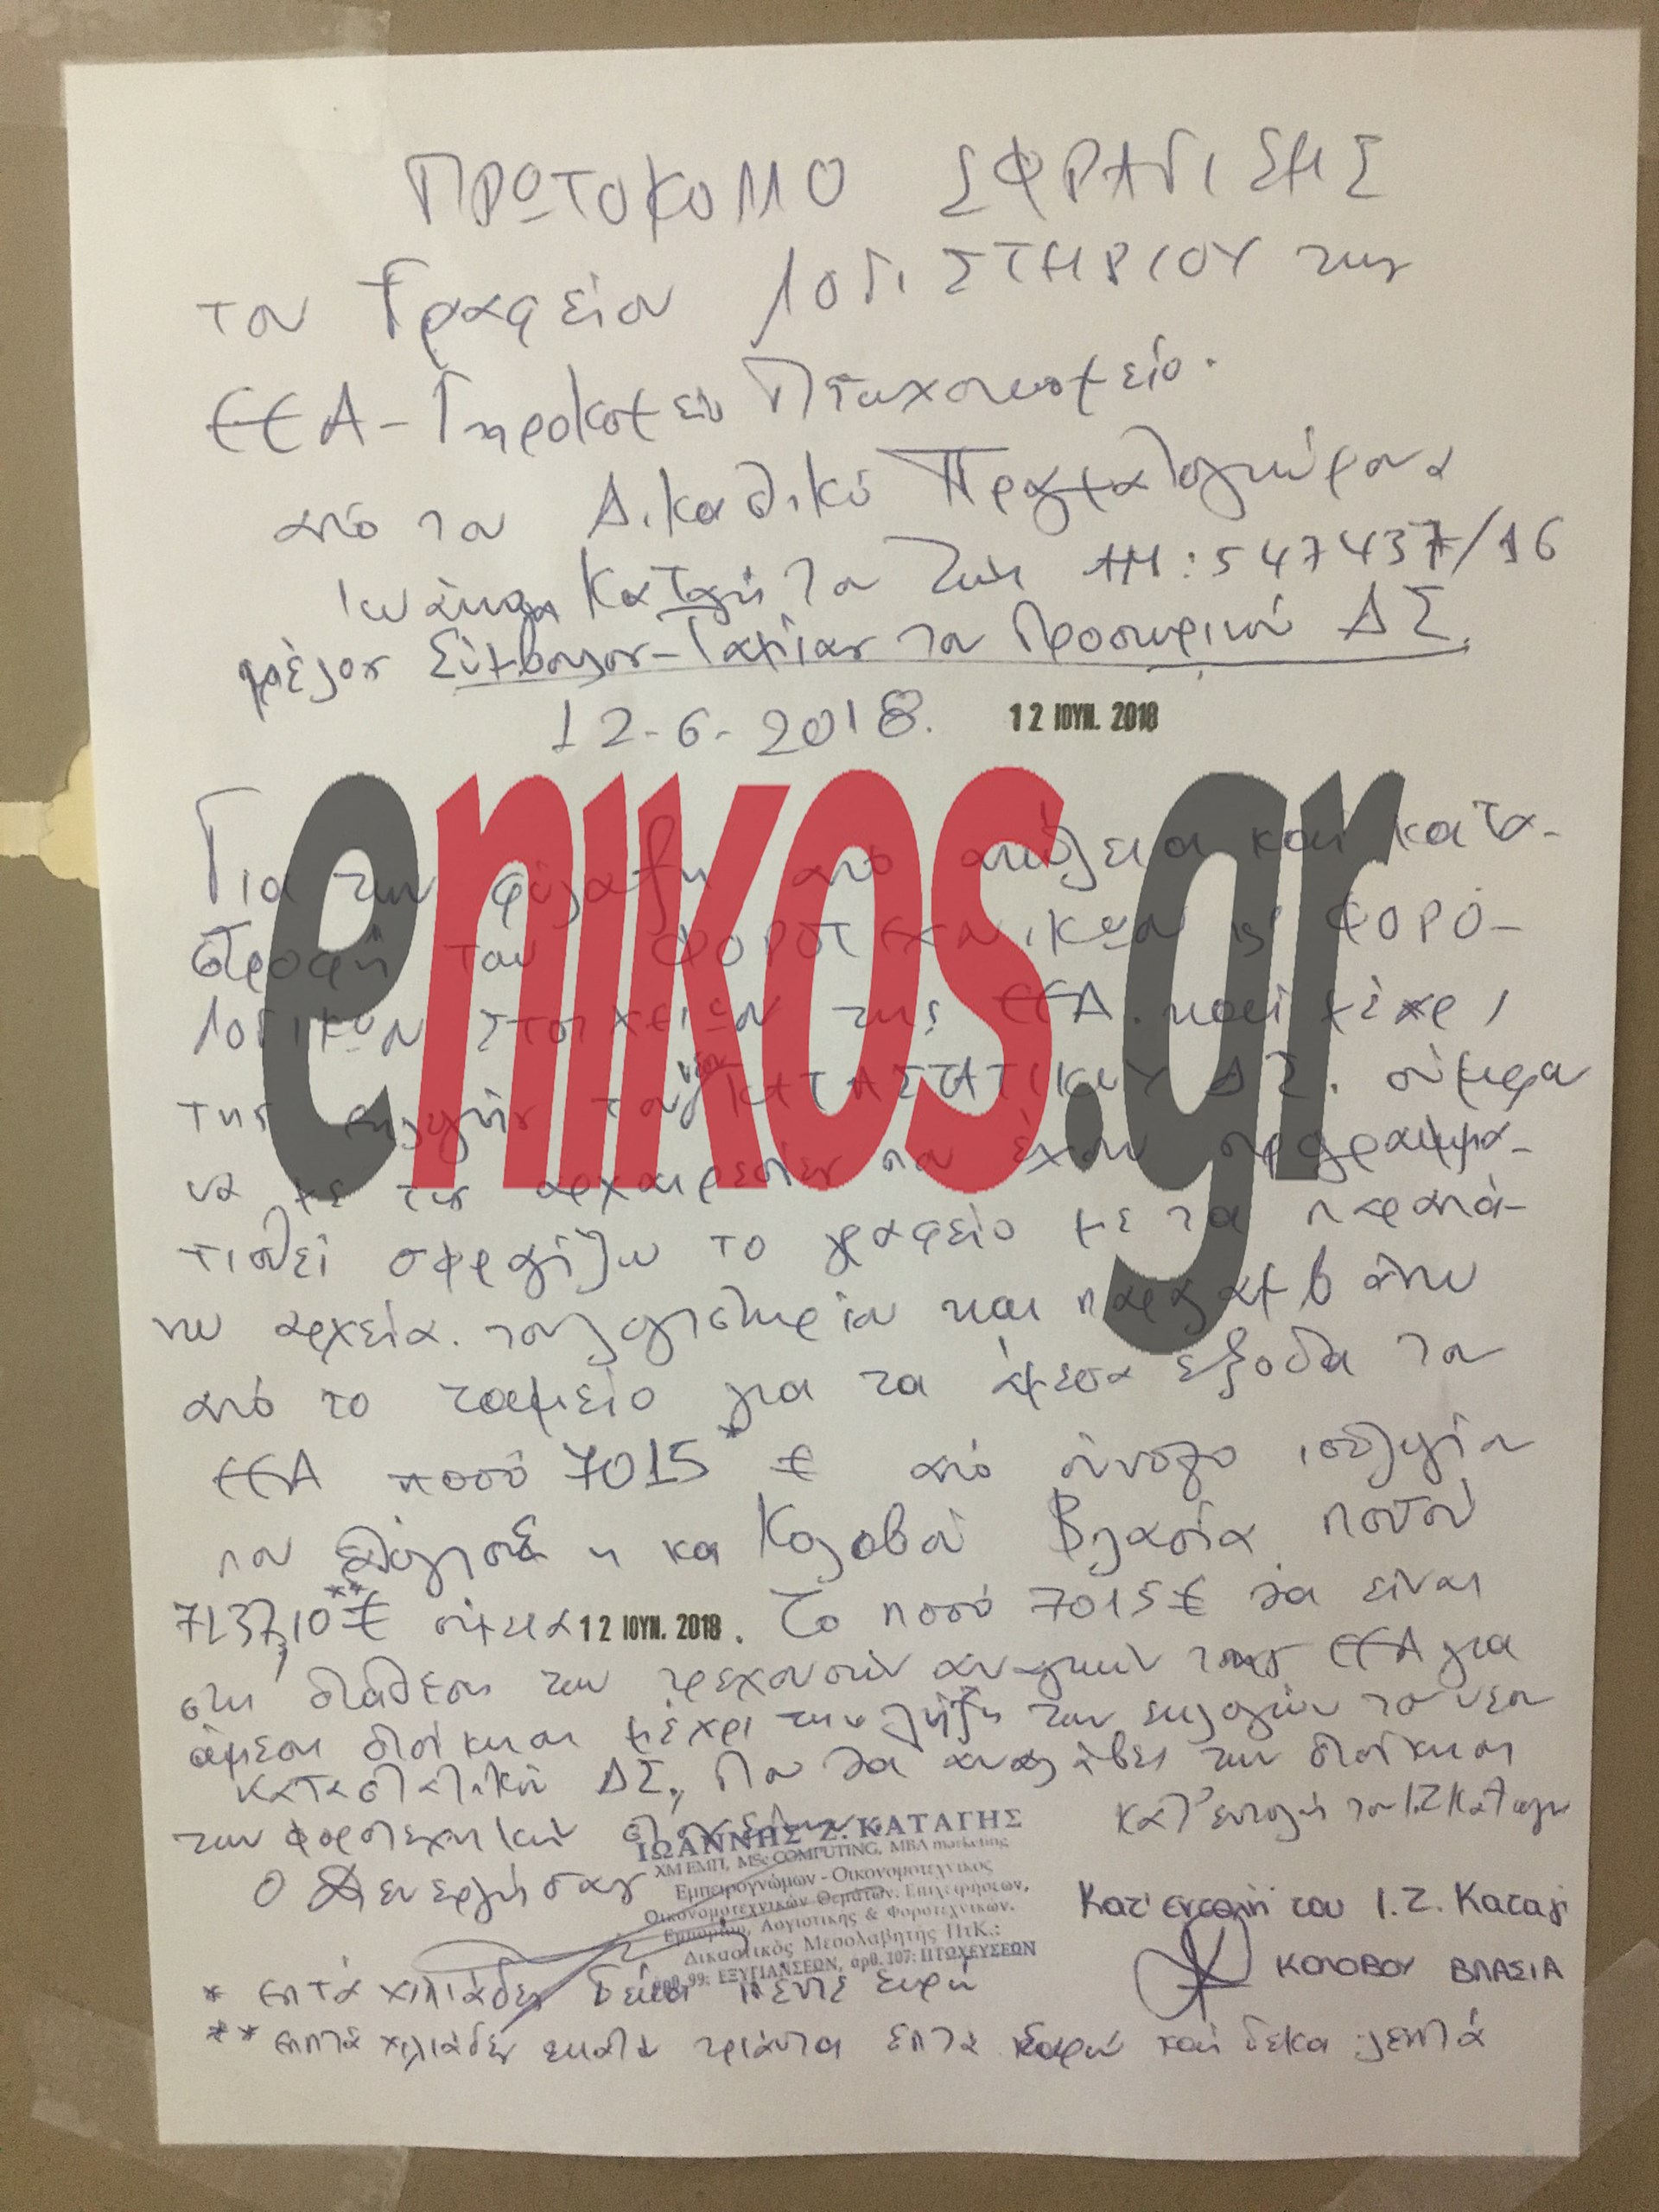 ΠΡΩΤΟΚΟΛΛΟ ΣΦΡΑΓΙΣΗΣ
του Γραφείου ΛΟΓΙΣΤΗΡΙΟΥ της
ΕΕΑ-Γηροκομείο Πτωχοκομείο.
από τον Δικαστικό Πραγματογνώμονα
Ιωάννη Καταγή του Ζωή ΑΜ: 547437/16
μέλος Σύμβουλον-Ταμίας του Προσωρινού ΔΣ.
12-6-2018. 12 ΙΟΥΝ. 2018
enikos.gr
Για την φύλαξη από απώλεια και κατα-
στροφή των ΦΟΡΟΤΕΧΝΙΚΩΝ & ΦΟΡΟ-
ΛΟΓΙΚΩΝ ΣΤΟΙΧΕΙΩΝ της ΕΕΑ. και μέχρι
της εκλογής του νέου ΚΑΤΑΣΤΑΤΙΚΟΥ ΔΣ. σύμφω
να με τις αρχαιρεσίες που έχουν προγραμμα-
τισθεί σφραγίζω το γραφείο με τα παραπά-
νω αρχεία. του λογιστηρίου και παραλαμβάνω
από το ταμείο για τα άμεσα έξοδα του
ΕΕΑ ποσό 7015* € από σύνολο ισολογίου
που η κα Κολοβού Βλασία ποσού
7137,10**€ σήμερα 12 ΙΟΥΝ. 2018. Το ποσό 7015€ θα είναι
στη διάθεση των τρεχουσών αναγκών της ΕΕΑ για
άμεση διοίκηση μέχρι την λήξη των εκλογών το νέου
καταστατικού ΔΣ, που θα αναλάβει την διοίκηση
των φοροτεχνικών στοιχείων.
Κατ' εντολή του Ι.Ζ Καταγη
Ο Διενεργήσας
ΙΩΑΝΝΗΣ Ζ. ΚΑΤΑΓΗΣ
ΧΜ ΕΜΠ, MSc COMPUTING, MBA marketing
Εμπειρογνώμων - Οικονομοτεχνικός
Οικονομοτεχνικών Θεμάτων. Επιχειρήσεων,
Εμπορίου, Λογιστικής & Φοροτεχνικών.
Δικαστικός Μεσολαβητής ΠτΚ.:
αρθ. 99: ΕΞΥΓΙΑΝΣΕΩΝ, αρθ. 107: ΠΤΩΧΕΥΣΕΩΝ
Κατ' εντολή του Ι. Ζ. Καταγή
ΚΟΛΟΒΟΥ ΒΛΑΣΙΑ
* επτά χιλιάδες δέκα πέντε ευρώ
** επτά χιλιάδες εκατό τριάντα επτά ευρώ και δεκα λεπτά